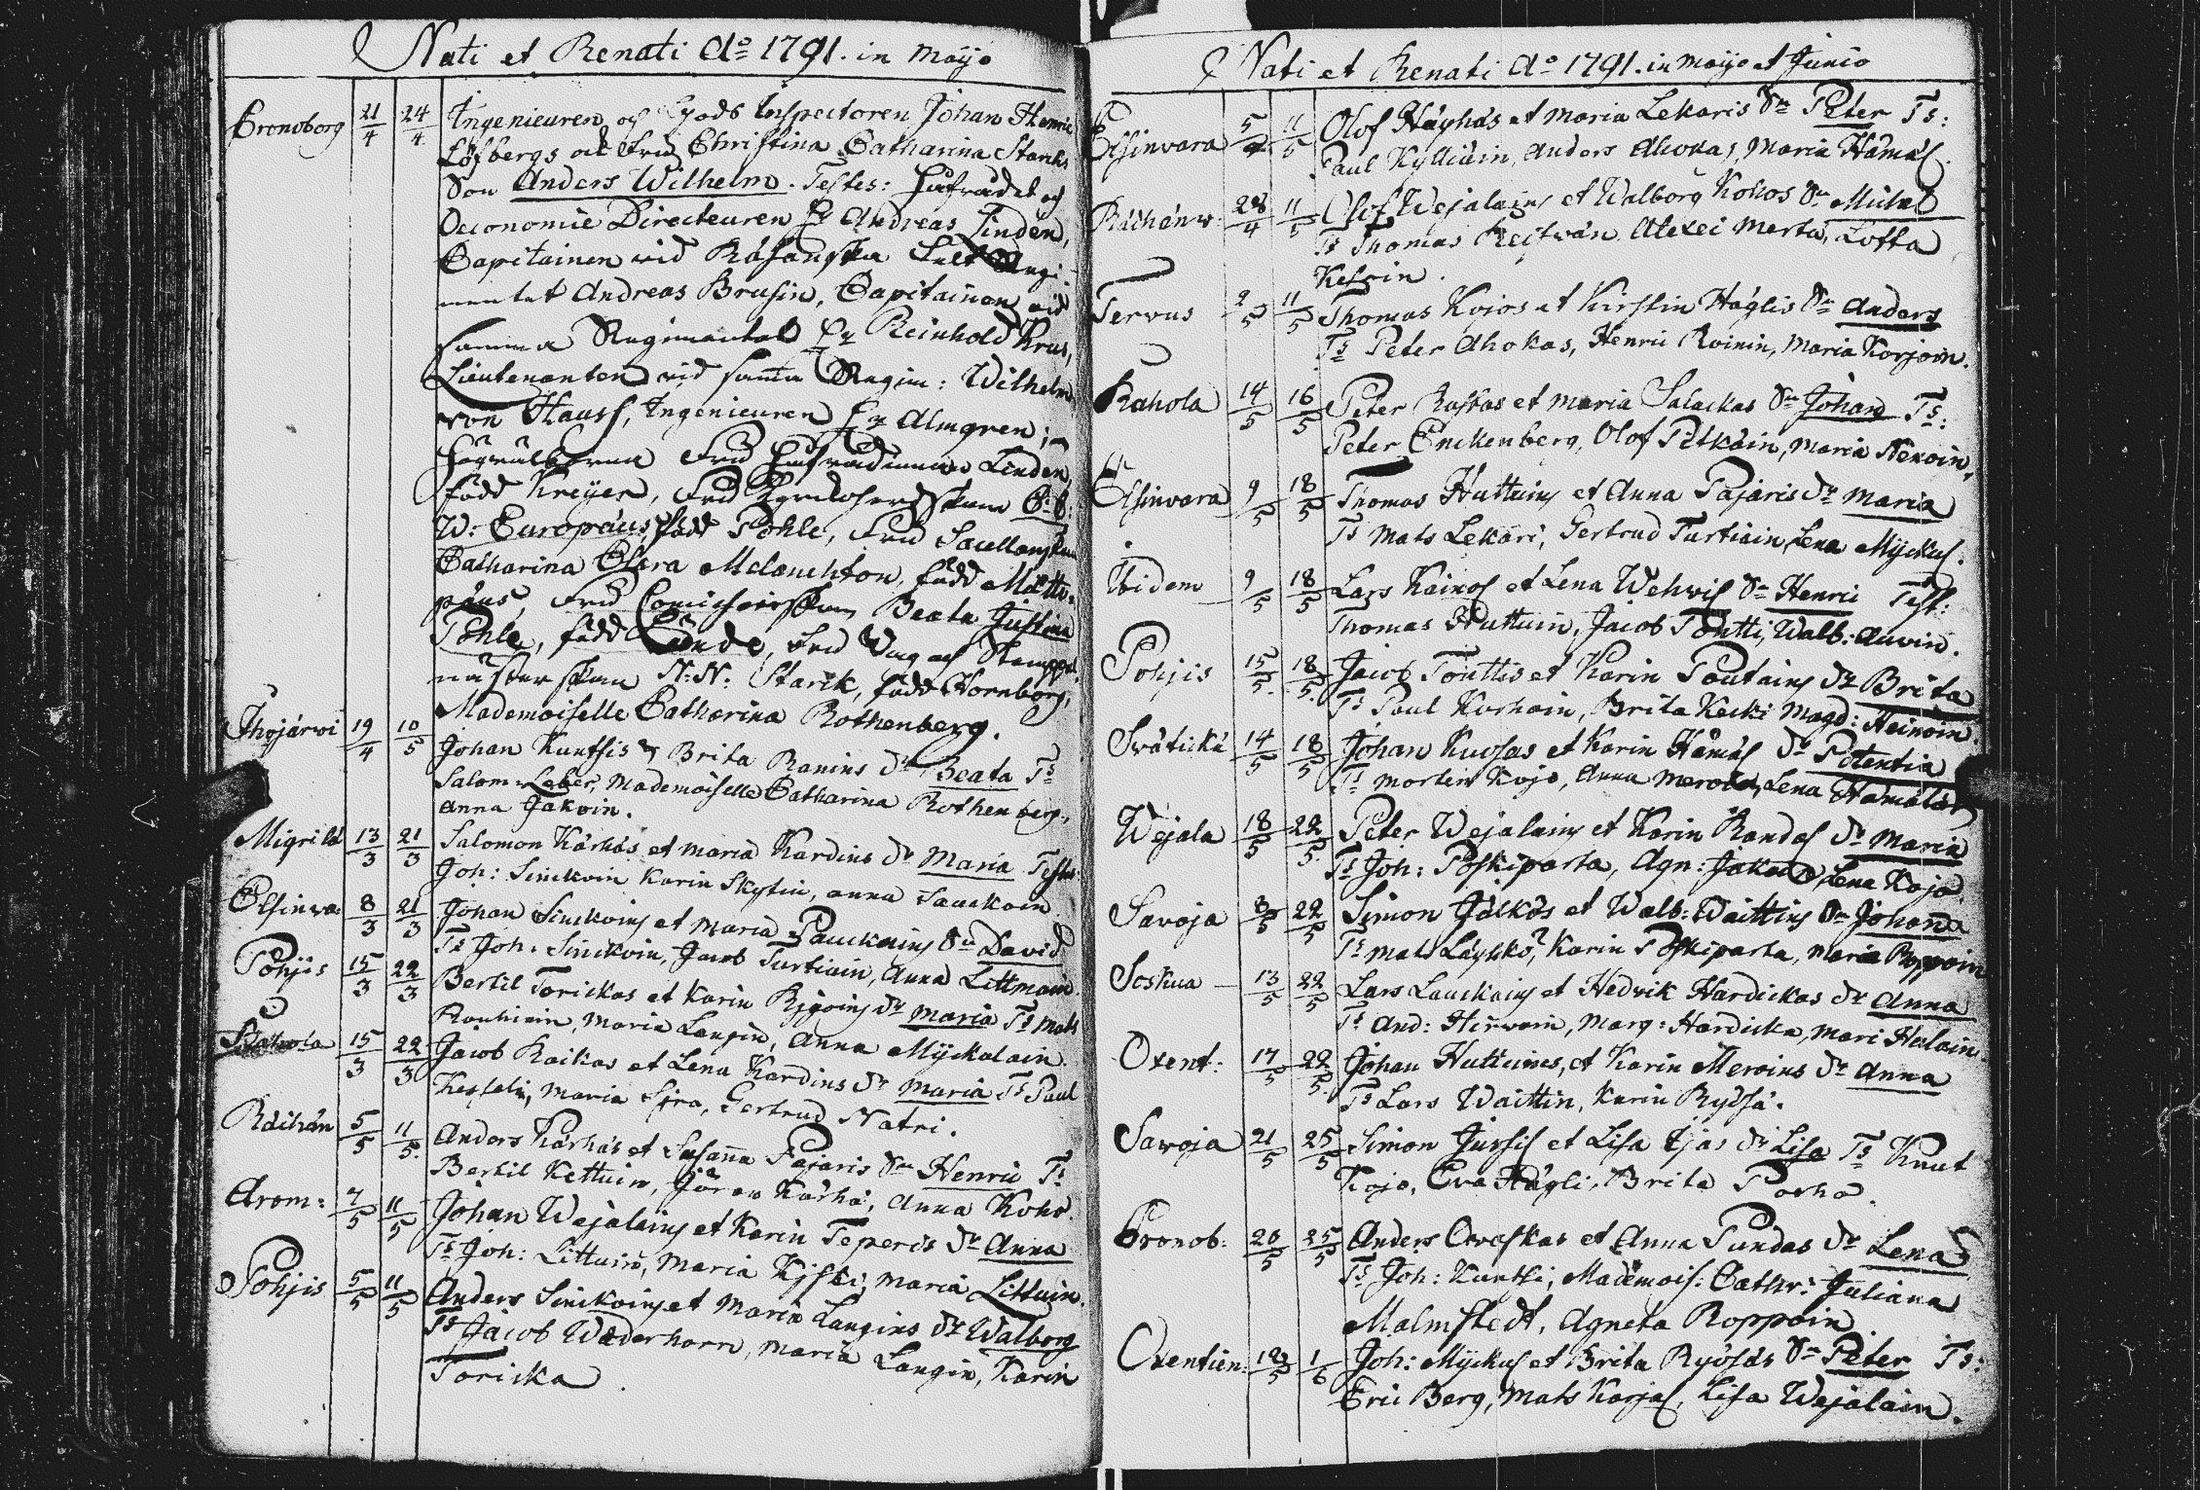 Nati et Renati Ao 1791. in Mayo
Cronoborg 21/4 24/4 Ingenieuren och Gods Inspectoren Johan Henric
Löfbergs och Fru Christina Catharina Starks
Son Anders Wilhelm. Testes: Hofrådet och
Oeconomie Directeuren Hr Andreas Linden,
Capitainen vid Räsanska Felt Regi-
mentet Andreas Brusin, Capitainen vid
samma Regimentet Hr Reinhold Krus,
Lieutenanten vid samma Regim: Wilhelm
von Hauss, Ingenieuren Hr Almgren;
Högvälborna Fru Linden,
född Kreyer, Fru
W: Europäus, född Pohle, Fru
Catharina Melanchton, född
Fru Beata Justina
Pohle, född Fru
N: N: Starck, född Hornborg,
Mademoiselle Catharina Rothenberg.
Ihojärwi 19/4 10/5 Johan Kuntsis Brita Ranins Dr Beata Ts
Salom: Leber, Mademoiselle Catharina Rothenberg,
Anna Jakoin.
Migrilä 13/3 21/3 Salomon Kärhäs et Maria Kardins Dr Maria Testes
Joh: Sinckoin Karin Skytin, Anna Sauckoin
Elsinva: 8/3 21/3 Johan Sinckoins et Maria Pauckoins Sn David
Ts Joh: Sinckoin, Jacob Turtiain, Anna Littmain
Pohjis 15/3 22/3 Bertil Torickas et Karin Dr Maria Ts Mats
Rouhiain, Maria Langin, Anna Myckalain.
Rahola 15/3 22/3 Jacob Raikas et Lena Kardins Dr Maria Ts Paul
Maria Sira, Gertrud Natri.
Räihän 5/5 11/5 Anders Kärhäs et Susanna Pajaris Sn Henric Ts
Bertil Kettuin, Göran Kärhä, Anna Koho.
Arom: 7/5 11/5 Johan Wejalains et Karin Teperis Dr Anna
Ts Joh: Littuin, Maria Maria Littuin.
Pohjis 5/5 11/5 Anders Sinckoins et Maria Langins Dr Walborg
Ts Jacob Wæderhorn, Maria Langin, Karin
Toricka
Nati et Renati Ao 1791. in Mayo et Junio
Elsinvara 5/5 11/5 Olof Häyhäs et Maria Lekaris Sn Peter Ts:
Paul Kylliäin, Anders Ahokas, Maria Hämäl.
Räihänw: 28/4 11/5 Olof Wejalains et Walborg Kokos Sn Michel
Ts Thomas Alexei Lotta
Kesoin.
Tervus 2/5 11/5 Thomas Koios et Kirstin Häglis Sn Anders
Ts Peter Ahokas, Henric Roinin, Maria Korjoin.
Rahola 14/5 16/5 Peter Rastas et Maria Salackas Sn Johan Ts:
Peter Enckenberg, Olof Pitkäin, Maria Nexoin.
Elsinvara 9/5 18/5 Thomas Huttuins et Anna Pajaris Dr Maria
Ts Mats Lekari, Gertrud Turtiain, Lena Myckul.
Ibidem 9/5 18/5 Lars Kainos et Lena Wehwis Sn Henric Test:
Thomas Huttuin, Jacob Tontti, Walb: Auvin.
Pohjis 15/5 18/5 Jacob Tonttis et Karin Poutains Dr Brita
Ts Paul Korhoin, Brita Kecki Magd: Heinoin.
Svätickä 14/5 18/5 Johan Kuosas et Karin Hämäl Dr Potentia
Ts Morten Kojo, Anna Lena Hämäläin
Wejala 18/5 22/5 Peter Wejalains et Karin Randas Dr Maria
Ts Joh: Poskiparta, Agn: Jakoin, Lena Kojo
Savoja 8/5 22/5 Simon Jälkös et Walb: Waittins Sn Johan
Ts Mats Karin Poskiparta, Maria Roppoin
Soskua 13/5 22/5 Lars Lauckains et Hedvik Hardickas Dr Anna
Ts And: Hirwoin, Marg: Hardicka, Mari
Oxent: 17/5 22/5 Johan Huttuines, et Karin Meroins Dr Anna
Ts Lars Waittin, Karin Ryösä.
Savoja 21/5 25/5 Simon Jussis et Lisa Ijäs Dr Lisa Ts Knut
Kojo, Eva Hägli, Brita Porho.
Cronob: 20/5 25/5 Anders Orvaskas et Anna Pundas Dr Lena
Ts Joh: Kuntsi, Mademois: Cathr: Juliana
Malmstedt, Agneta Roppoin
Oxentien: 1/6 Joh: Myckul et Brita Ryösäs Sn Peter Ts:
Eric Berg, Mats Karjal, Lisa Wejalain.